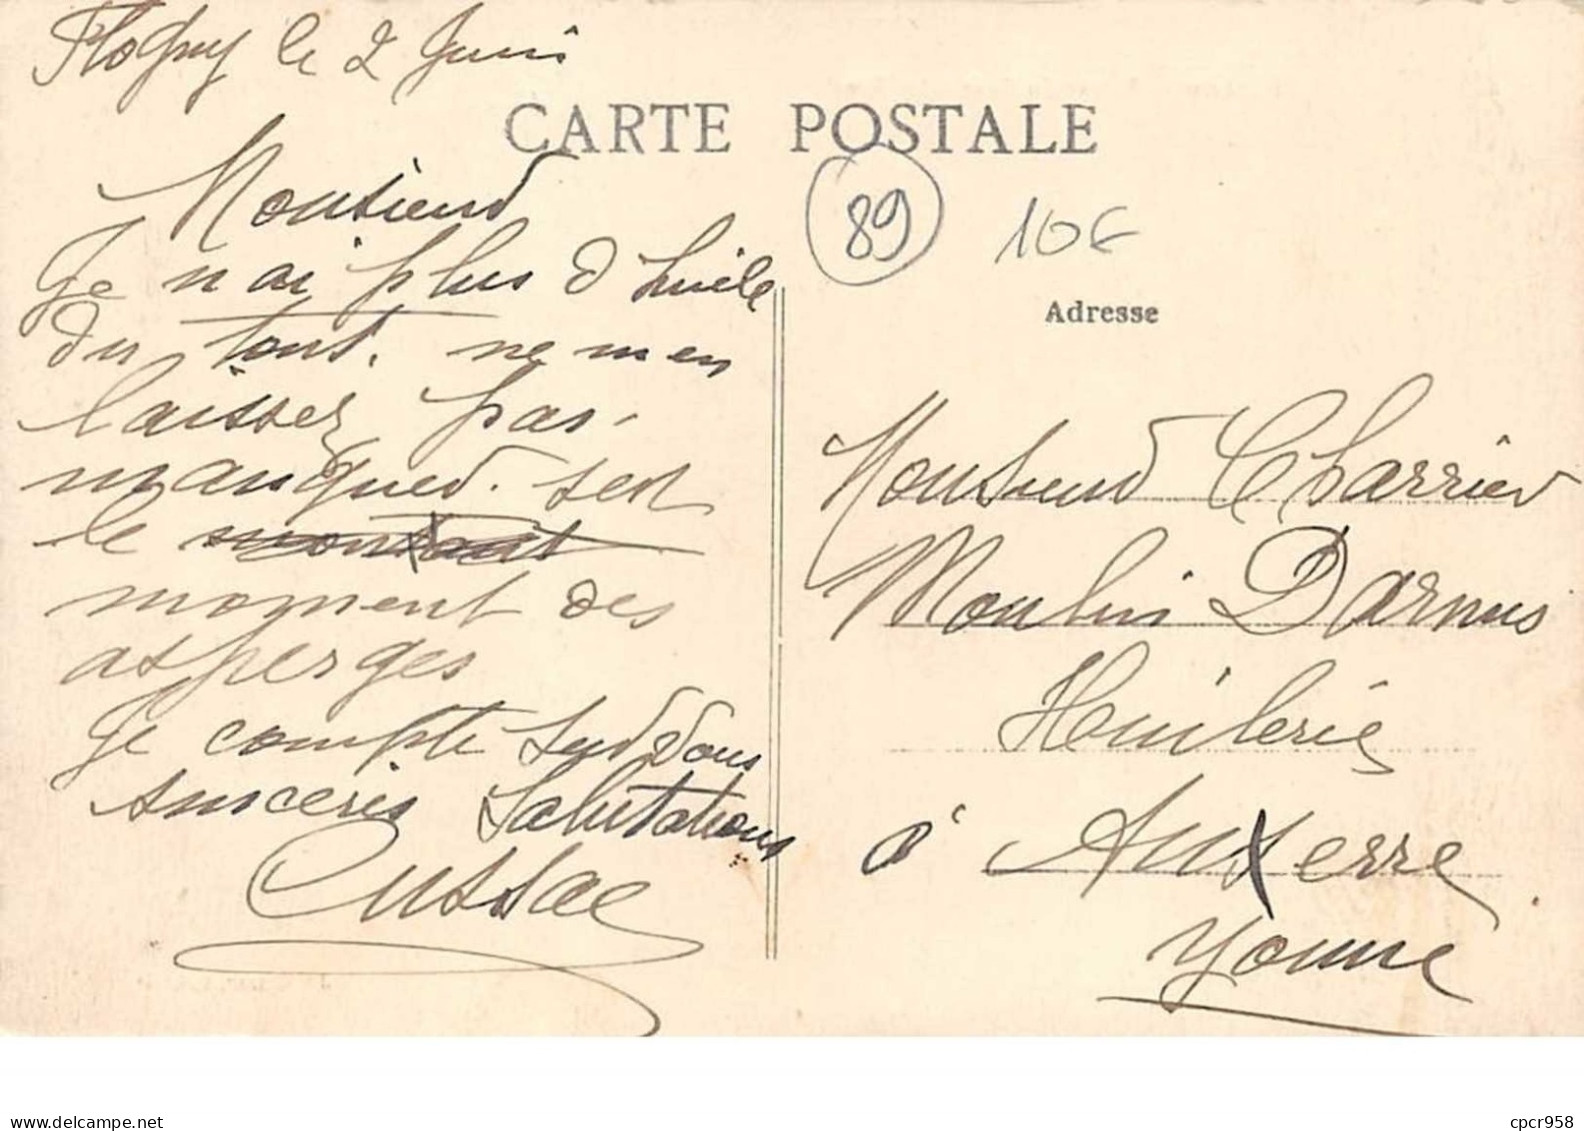 Flogny le 2 Juin
CARTE POSTALE
Monsieur
Je n ai plus d huile
du tout. ne m en
laissez pas.
manquer. sest
le
moment des
asperges
Je compte sur vous
sinceres Salutations
Cussac
89
10€
Adresse
Monsieur Charrier
Moulin Darnus
Huilerie
à Auxerre
Yonne
cpcr958